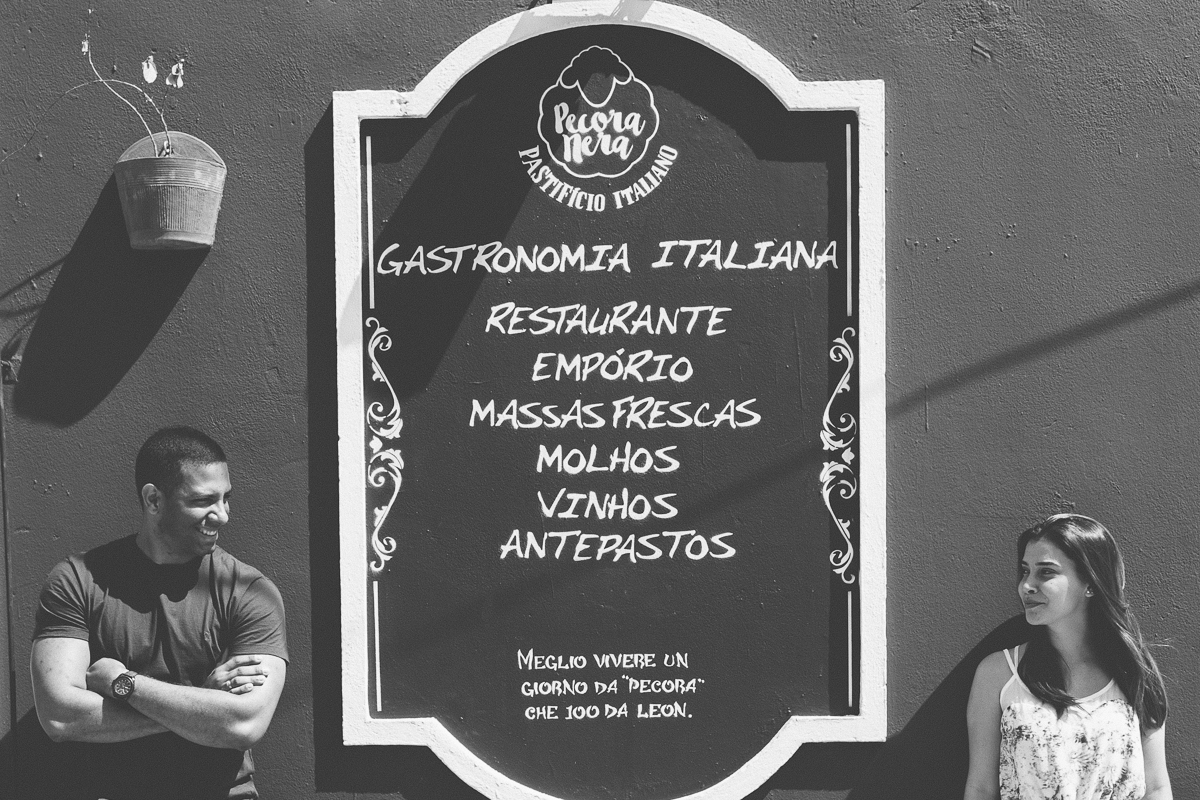 Pecora
Nera
PASTIFÍCIO ITALIANO
GASTRONOMIA ITALIANA
RESTAURANTE
EMPÓRIO
MASSAS FRESCAS
MOLHOS
VINHOS
ANTEPASTOS
MEGLIO VIVERE UN
GIORNO DA "PECORA"
CHE 100 DA LEON.